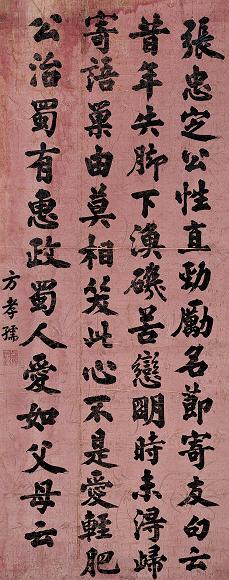 張忠定公性直勁勵名節寄友句云
昔年失脚下漁磯苦戀明時未得歸
寄語巢由莫相笑此心不是愛輕肥
公治蜀有惠政蜀人愛如父母云
方孝孺